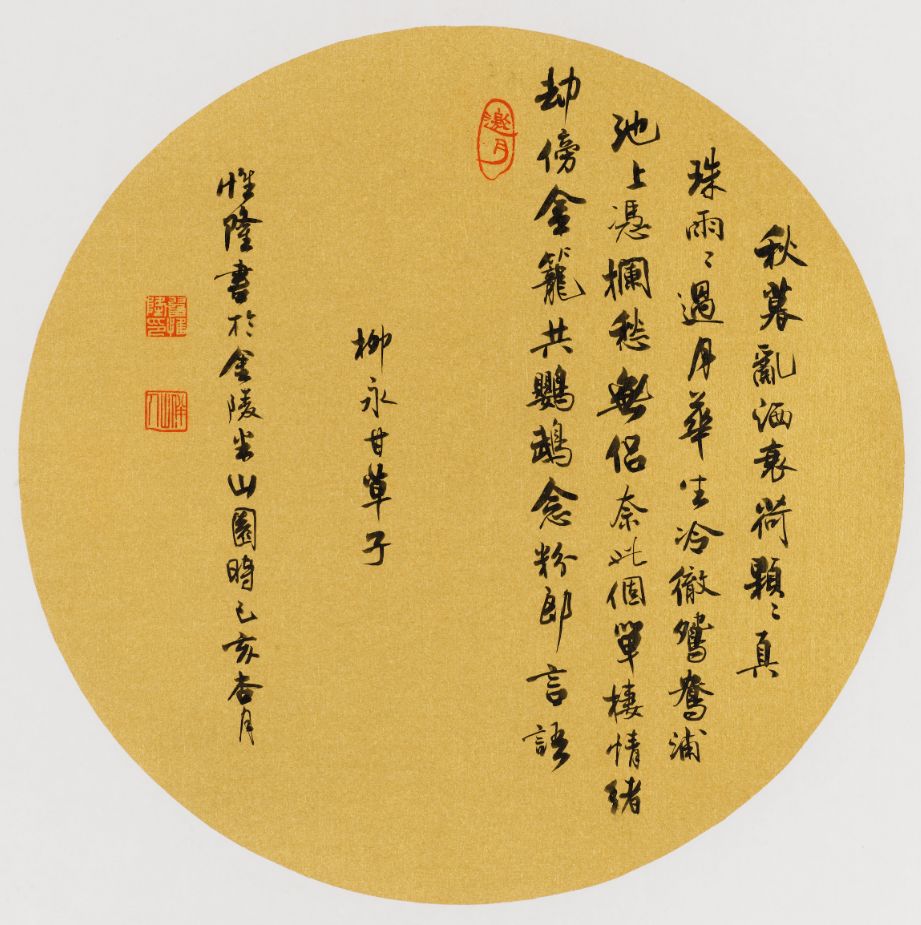 秋暮亂洒衰荷顆〻真
珠雨〻過月華生冷徹鴛鴦浦
池上憑攔愁無侶奈此個單棲情緒
却傍金籠共鸚鵡念粉郎言語
柳永甘草子
惟隆書於金陵半山園時己亥杏月
邀月